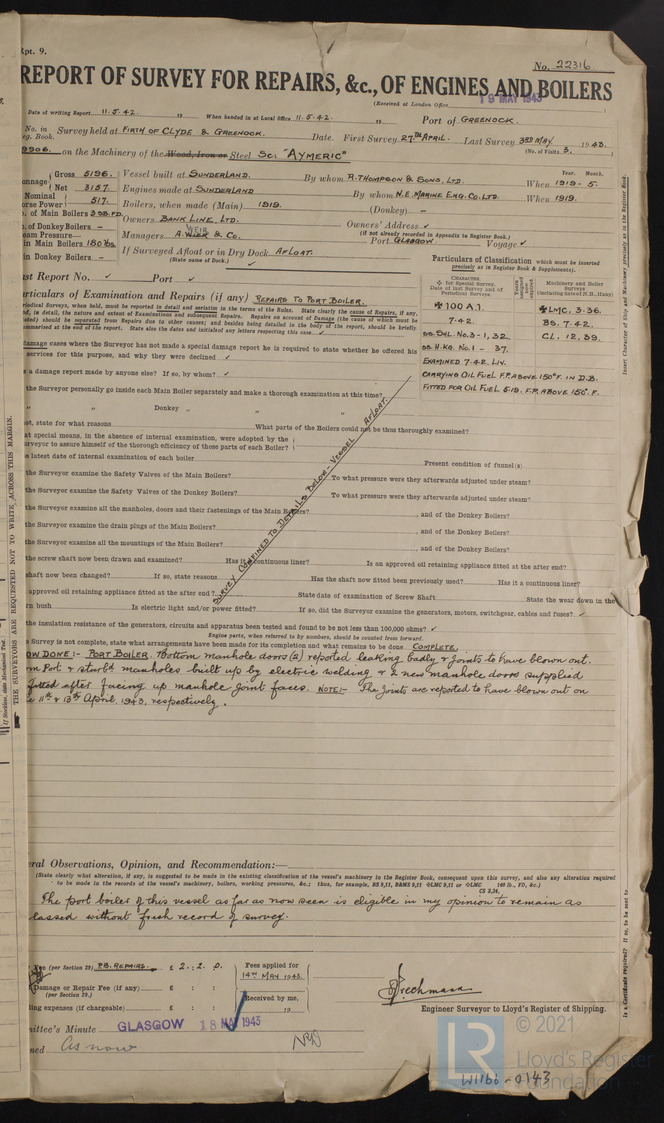 Rpt. 9.
No. 22316
REPORT OF SURVEY FOR REPAIRS, &c., OF ENGINES AND BOILERS
(Received at London Office 19 MAY 1943)
Date of writing Report 11.5.42. 19 When handed in at Local Office 11.5.42. 19 Port of GREENOCK.
No. in Survey held at FIRTH OF CLYDE & GREENOCK. Date. First Survey 27TH APRIL. Last Survey 3RD MAY 1943.
Reg. Book. (No. of Visits 3.)
9906. on the Machinery of the Wood, Iron or Steel Sc. "AYMERIC"
Gross 5196. Vessel built at SUNDERLAND. By whom R. THOMPSON & SONS, LTD. When 1919 - 5.
Year. Month.
Net 3157. Engines made at SUNDERLAND By whom N.E. MARINE ENG. CO. LTD. When 1919.
Nominal
Horse Power 517. Boilers, when made (Main) 1919. (Donkey) —
of Main Boilers 3 SB.FD. Owners BANK LINE, LTD. Owners' Address ✓
(if not already recorded in Appendix to Register Book.)
of Donkey Boilers — Managers A. WEIR & Co. Port GLASGOW Voyage ✓
WEIR
Steam Pressure—
in Main Boilers 180 lbs If Surveyed Afloat or in Dry Dock AFLOAT.
in Donkey Boilers — (State name of Dock.) ✓
Last Report No. ✓ Port ✓
Particulars of Classification which must be inserted
precisely as in Register Book & Supplements).
CHARACTER.
✠ for Special Survey.
Date of last Survey and of
Periodical Surveys.
Machinery and Boiler
Surveys
(including dates of N.B., if any)
✠ 100 A1. ✠ LMC. 3.36.
7.42. BS. 7.42.
SS. SHL. NO.3-1,32 CL. 12,39.
SS. H.KG. NO.1 - 37.
EXAMINED 7.42. LIV.
CARRYING OIL FUEL F.P. ABOVE 150°F. IN D.B.
FITTED FOR OIL FUEL 5.19. F.P. ABOVE 150°F.
Particulars of Examination and Repairs (if any) REPAIRS TO PORT BOILER.
Damage cases where the Surveyor has not made a special damage report he is required to state whether he offered his
services for this purpose, and why they were declined ✓
a damage report made by anyone else? If so, by whom? ✓
the Surveyor personally go inside each Main Boiler separately and make a thorough examination at this time?
" " Donkey " " "
not, state for what reasons What parts of the Boilers could not be thus thoroughly examined?
at special means, in the absence of internal examination, were adopted by the
surveyor to assure himself of the thorough efficiency of those parts of each Boiler?
latest date of internal examination of each boiler Present condition of funnel(s)
the Surveyor examine the Safety Valves of the Main Boilers? To what pressure were they afterwards adjusted under steam?
the Surveyor examine the Safety Valves of the Donkey Boilers? To what pressure were they afterwards adjusted under steam?
the Surveyor examine all the manholes, doors and their fastenings of the Main Boilers? , and of the Donkey Boilers?
the Surveyor examine the drain plugs of the Main Boilers? , and of the Donkey Boilers?
the Surveyor examine all the mountings of the Main Boilers? , and of the Donkey Boilers?
SURVEY CONFINED TO DETAILS BELOW - VESSEL AFLOAT.
the screw shaft now been drawn and examined? Has it a continuous liner? Is an approved oil retaining appliance fitted at the after end?
shaft now been changed? If so, state reasons Has the shaft now fitted been previously used? Has it a continuous liner?
approved oil retaining appliance fitted at the after end? State date of examination of Screw Shaft State the wear down in the
stern bush Is electric light and/or power fitted? If so, did the Surveyor examine the generators, motors, switchgear, cables and fuses? ✓
the insulation resistance of the generators, circuits and apparatus been tested and found to be not less than 100,000 ohms? ✓
Engine parts, when referred to by numbers, should be counted from forward.
Survey is not complete, state what arrangements have been made for its completion and what remains to be done. COMPLETE.
NOW DONE:- PORT BOILER. Bottom manhole doors (2) reported leaking badly & joints to have blown out.
Port & starbd manholes built up by electric welding & 2 new manhole doors supplied
fitted after facing up manhole joint faces. NOTE:- The joints are reported to have blown out on
11th & 13th April, 1943, respectively.
General Observations, Opinion, and Recommendation:—
(State clearly what alteration, if any, is suggested to be made in the existing classification of the vessel's machinery in the Register Book, consequent upon this survey, and also any alteration required
to be made in the records of the vessel's machinery, boilers, working pressures, &c.; thus, for example, BS 9,11, B&MS 9,11 ✠LMC 9,11 or ✠LMC 140 lb., FD, &c.)
CS 3,34,
The port boiler of this vessel as far as now seen is eligible in my opinion to remain as
classed without fresh record of survey.
Fee (per Section 29) P.B. REPAIRS. £ 2 : 2 . 0. Fees applied for
14TH MAY 1943.
Damage or Repair Fee (if any) £ : :
(per Section 29.)
Received by me,
Travelling expenses (if chargeable) £ : : 19
Engineer Surveyor to Lloyd's Register of Shipping.
Committee's Minute GLASGOW 18 MAY 1943
As now
THE SURVEYORS ARE REQUESTED NOT TO WRITE ACROSS THIS MARGIN.
Insert Character of Ship and Machinery precisely as in the Register Book.
Is a Certificate required? If so, to be sent to
© 2021
LR
Lloyd's Register
Foundation
W1166-0143